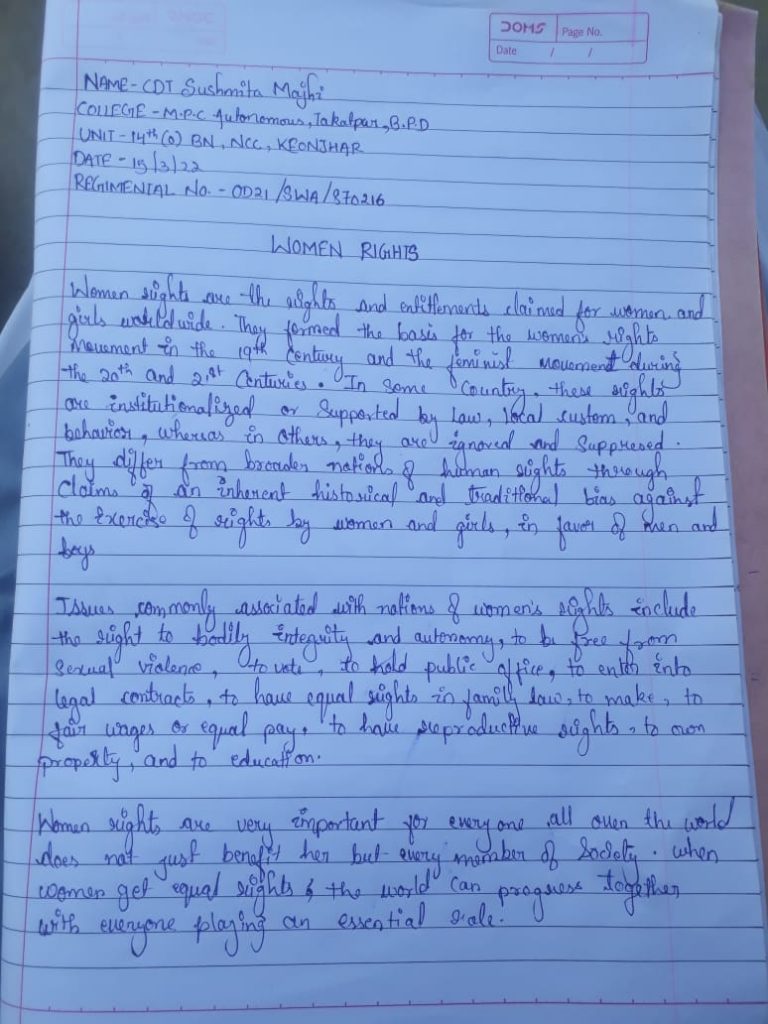 DOMS
Page No.
Date / /
NAME - CDT Sushmita Majhi
COLLEGE - M.P.C Autonomous, Takatpur, B.P.D
UNIT - 14th (O) BN, NCC, KEONJHAR
DATE - 15/3/22
REGIMENIAL No. - OD21/SWA/870216
WOMEN RIGHTS
Women rights are the rights and entitlements claimed for women and
girls worldwide. They formed the basis for the women's rights
movement in the 19th Century and the feminist movement during
the 20th and 21st Centuries. In Some Country, these rights
are institutionalized or Supported by Law, local custom, and
behavior, whereas in others, they are ignored and Suppresed.
They differ from broader notions of human rights through
Claims of an inherent historical and traditional bias against
the Exercise of rights by women and girls, in favor of men and
boys
Issues commonly associated with notions of women's rights include
the right to bodily integrity and autonomy, to be free from
Sexual violence, to vote, to hold public office, to enter into
legal contracts, to have equal rights in family law, to make, to
fair wages or equal pay, to have reproductive rights, to own
property, and to education.
Women rights are very important for everyone all over the world
does not just benefit her but every member of Society. When
women get equal rights, the world can progress together
with everyone playing an essential role.